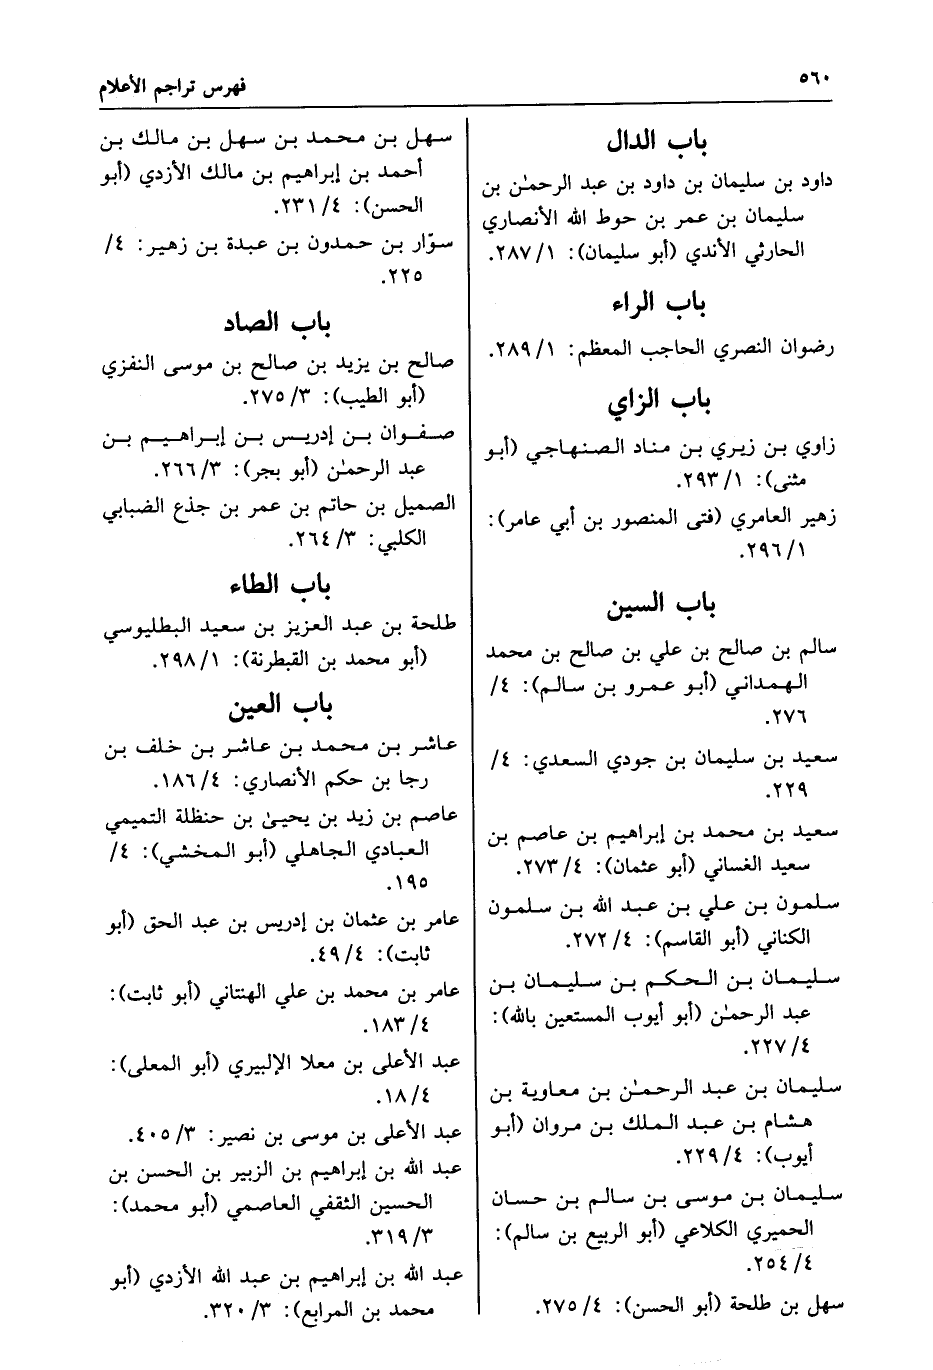 ٥٦٠
فهرس تراجم الأعلام
باب الدال
داود بن سليمان بن داود بن عبد الرحمٰن بن
سليمان بن عمر بن حوط الله الأنصاري
الحارثي الأندي (أبو سليمان): ١/ ٢٨٧.
باب الراء
رضوان النصري الحاجب المعظم: ١/ ٢٨٩.
باب الزاي
زاوي بن زيري بن مناد الصنهاجي (أبو
مثنى): ١/ ٢٩٣.
زهير العامري (فتى المنصور بن أبي عامر):
١/ ٢٩٦.
باب السين
سالم بن صالح بن علي بن صالح بن محمد
الهمداني (أبو عمرو بن سالم): ٤/
٢٧٦.
سعيد بن سليمان بن جودي السعدي: ٤/
٢٢٩.
سعيد بن محمد بن إبراهيم بن عاصم بن
سعيد الغساني (أبو عثمان): ٤/ ٢٧٣.
سلمون بن علي بن عبد الله بن سلمون
الكناني (أبو القاسم): ٤/ ٢٧٢.
سليمان بن الحكم بن سليمان بن
عبد الرحمٰن (أبو أيوب المستعين بالله):
٤/ ٢٢٧.
سليمان بن عبد الرحمٰن بن معاوية بن
هشام بن عبد الملك بن مروان (أبو
أيوب): ٤/ ٢٢٩.
سليمان بن موسى بن سالم بن حسان
الحميري الكلاعي (أبو الربيع بن سالم):
٤/ ٢٥٤.
سهل بن طلحة (أبو الحسن): ٤/ ٢٧٥.
سهل بن محمد بن سهل بن مالك بن
أحمد بن إبراهيم بن مالك الأزدي (أبو
الحسن): ٤/ ٢٣١.
سوّار بن حمدون بن عبدة بن زهير: ٤/
٢٢٥.
باب الصاد
صالح بن يزيد بن صالح بن موسى النفزي
(أبو الطيب): ٣/ ٢٧٥.
صفوان بن إدريس بن إبراهيم بن
عبد الرحمٰن (أبو بجر): ٣/ ٢٦٦.
الصميل بن حاتم بن عمر بن جذع الضبابي
الكلبي: ٣/ ٢٦٤.
باب الطاء
طلحة بن عبد العزيز بن سعيد البطليوسي
(أبو محمد بن القبطرنة): ١/ ٢٩٨.
باب العين
عاشر بن محمد بن عاشر بن خلف بن
رجا بن حكم الأنصاري: ٤/ ١٨٦.
عاصم بن زيد بن يحيىٰ بن حنظلة التميمي
العبادي الجاهلي (أبو المخشي): ٤/
١٩٥.
عامر بن عثمان بن إدريس بن عبد الحق (أبو
ثابت): ٤/ ٤٩.
عامر بن محمد بن علي الهنتاني (أبو ثابت):
٤/ ١٨٣.
عبد الأعلى بن معلا الإلبيري (أبو المعلى):
٤/ ١٨.
عبد الأعلى بن موسى بن نصير: ٣/ ٤٠٥.
عبد الله بن إبراهيم بن الزبير بن الحسن بن
الحسين الثقفي العاصمي (أبو محمد):
٣/ ٣١٩.
عبد الله بن إبراهيم بن عبد الله الأزدي (أبو
محمد بن المرابع): ٣/ ٣٢٠.